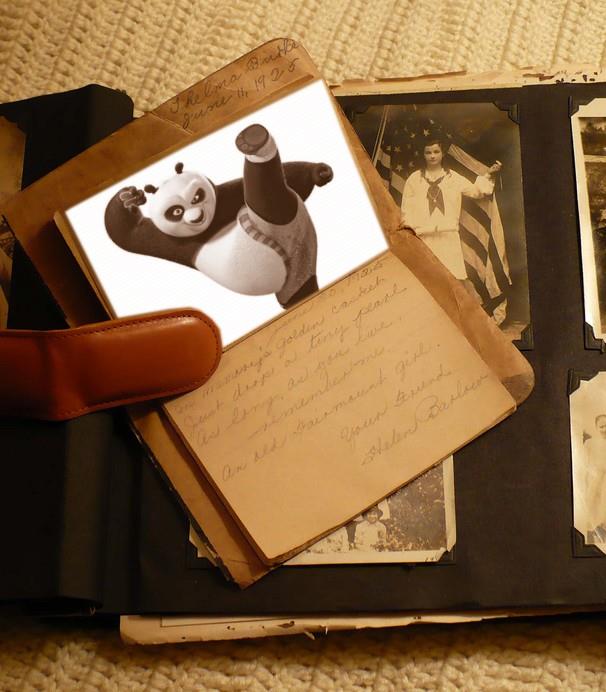 Thelma Butke
June 11, 1925
June 20, 1925
In memory's golden casket
Just drops a tiny pearl
As long as you live,
remember me.
An old Fairmount girl.
Your friend
Helen Barlow